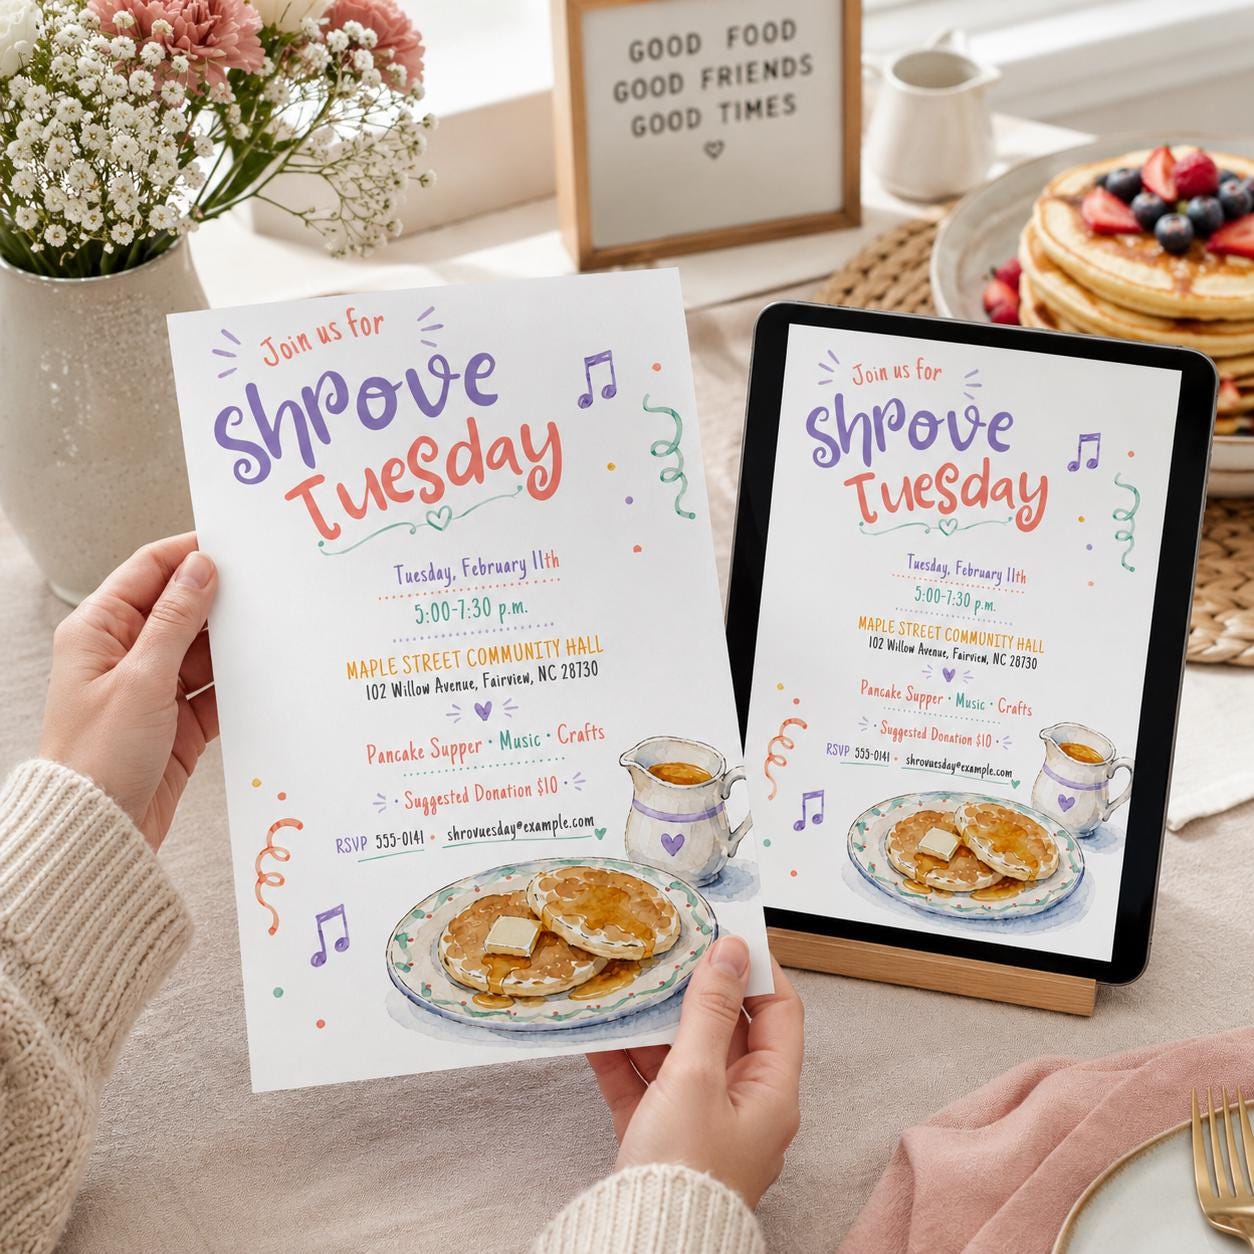 GOOD FOOD
GOOD FRIENDS
GOOD TIMES
Join us for
Shrove
Tuesday
Tuesday, February 11th
5:00-7:30 p.m.
MAPLE STREET COMMUNITY HALL
102 Willow Avenue, Fairview, NC 28730
Pancake Supper · Music · Crafts
· Suggested Donation $10 ·
RSVP 555-0141 • shrovuesday@example.com
Join us for
Shrove
Tuesday
Tuesday, February 11th
5:00-7:30 p.m.
MAPLE STREET COMMUNITY HALL
102 Willow Avenue, Fairview, NC 28730
Pancake Supper · Music · Crafts
· Suggested Donation $10 ·
RSVP 555-0141 • shrovuesday@example.com